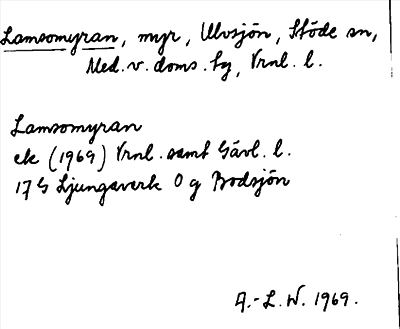 Lamsomyran, myr, Ulvsjön, Stöde sn,
Med. v. doms. hg, Vrnl. l.
Lamsomyran
ek (1969) Vrnl. samt Gävl. l.
17 G Ljungaverk O g Bodsjön
A.-L. W. 1969.